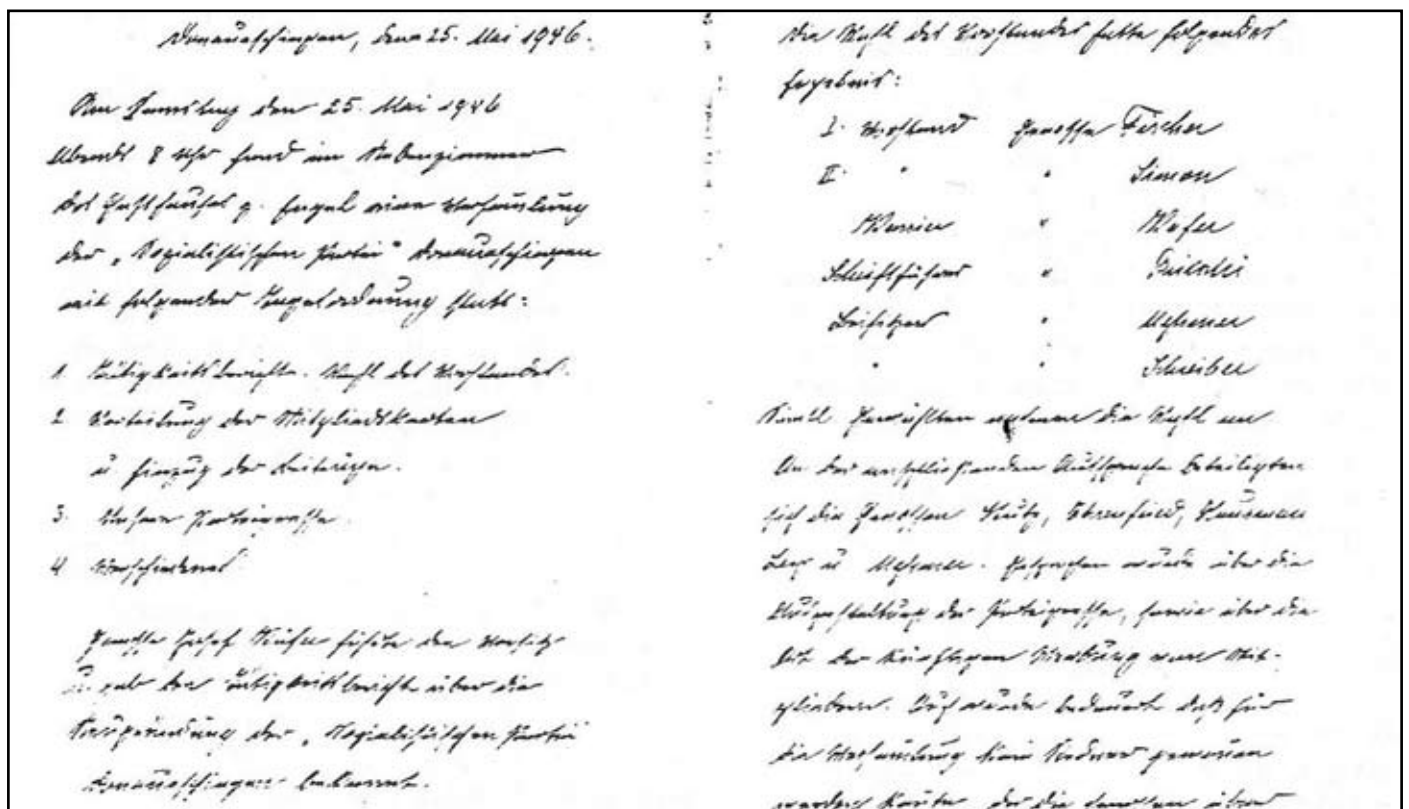 Donaueschingen, den 25. Mai 1946.
Am Samstag den 25. Mai 1946
Abends 8 Uhr fand im Nebenzimmer
des Gasthauses z. Engel eine Versammlung
der „Sozialistischen Partei“ Donaueschingen
mit folgender Tagesordnung statt:
1. Tätigkeitsbericht. Wahl des Vorstandes.
2. Verteilung der Mitgliedskarten
u. Einzug der Beiträge.
3. Unsere Parteipresse.
4. Verschiedenes
Genosse Josef führte den Vorsitz
u. gab den Tätigkeitsbericht über die
Neugründung der „Sozialistischen Partei
Donaueschingen bekannt.
Die Wahl des Vorstandes hatte folgendes
Ergebnis:
I. Vorstand Genosse Fischer
II. " " Simon
Kassier "
Schriftführer "
Beisitzer "
" " Schreiber
Gewählten nahmen die Wahl an
An der anschließenden Aussprache beteiligten
sich die Genossen
u. . Gesprochen wurde über die
Ausgestaltung der Parteipresse, sowie über die
Art der künftigen Werbung von Mit-
gliedern. Auch wurde bedauert daß für
die Versammlung kein Redner gewonnen
werden konnte, der die Genossen über